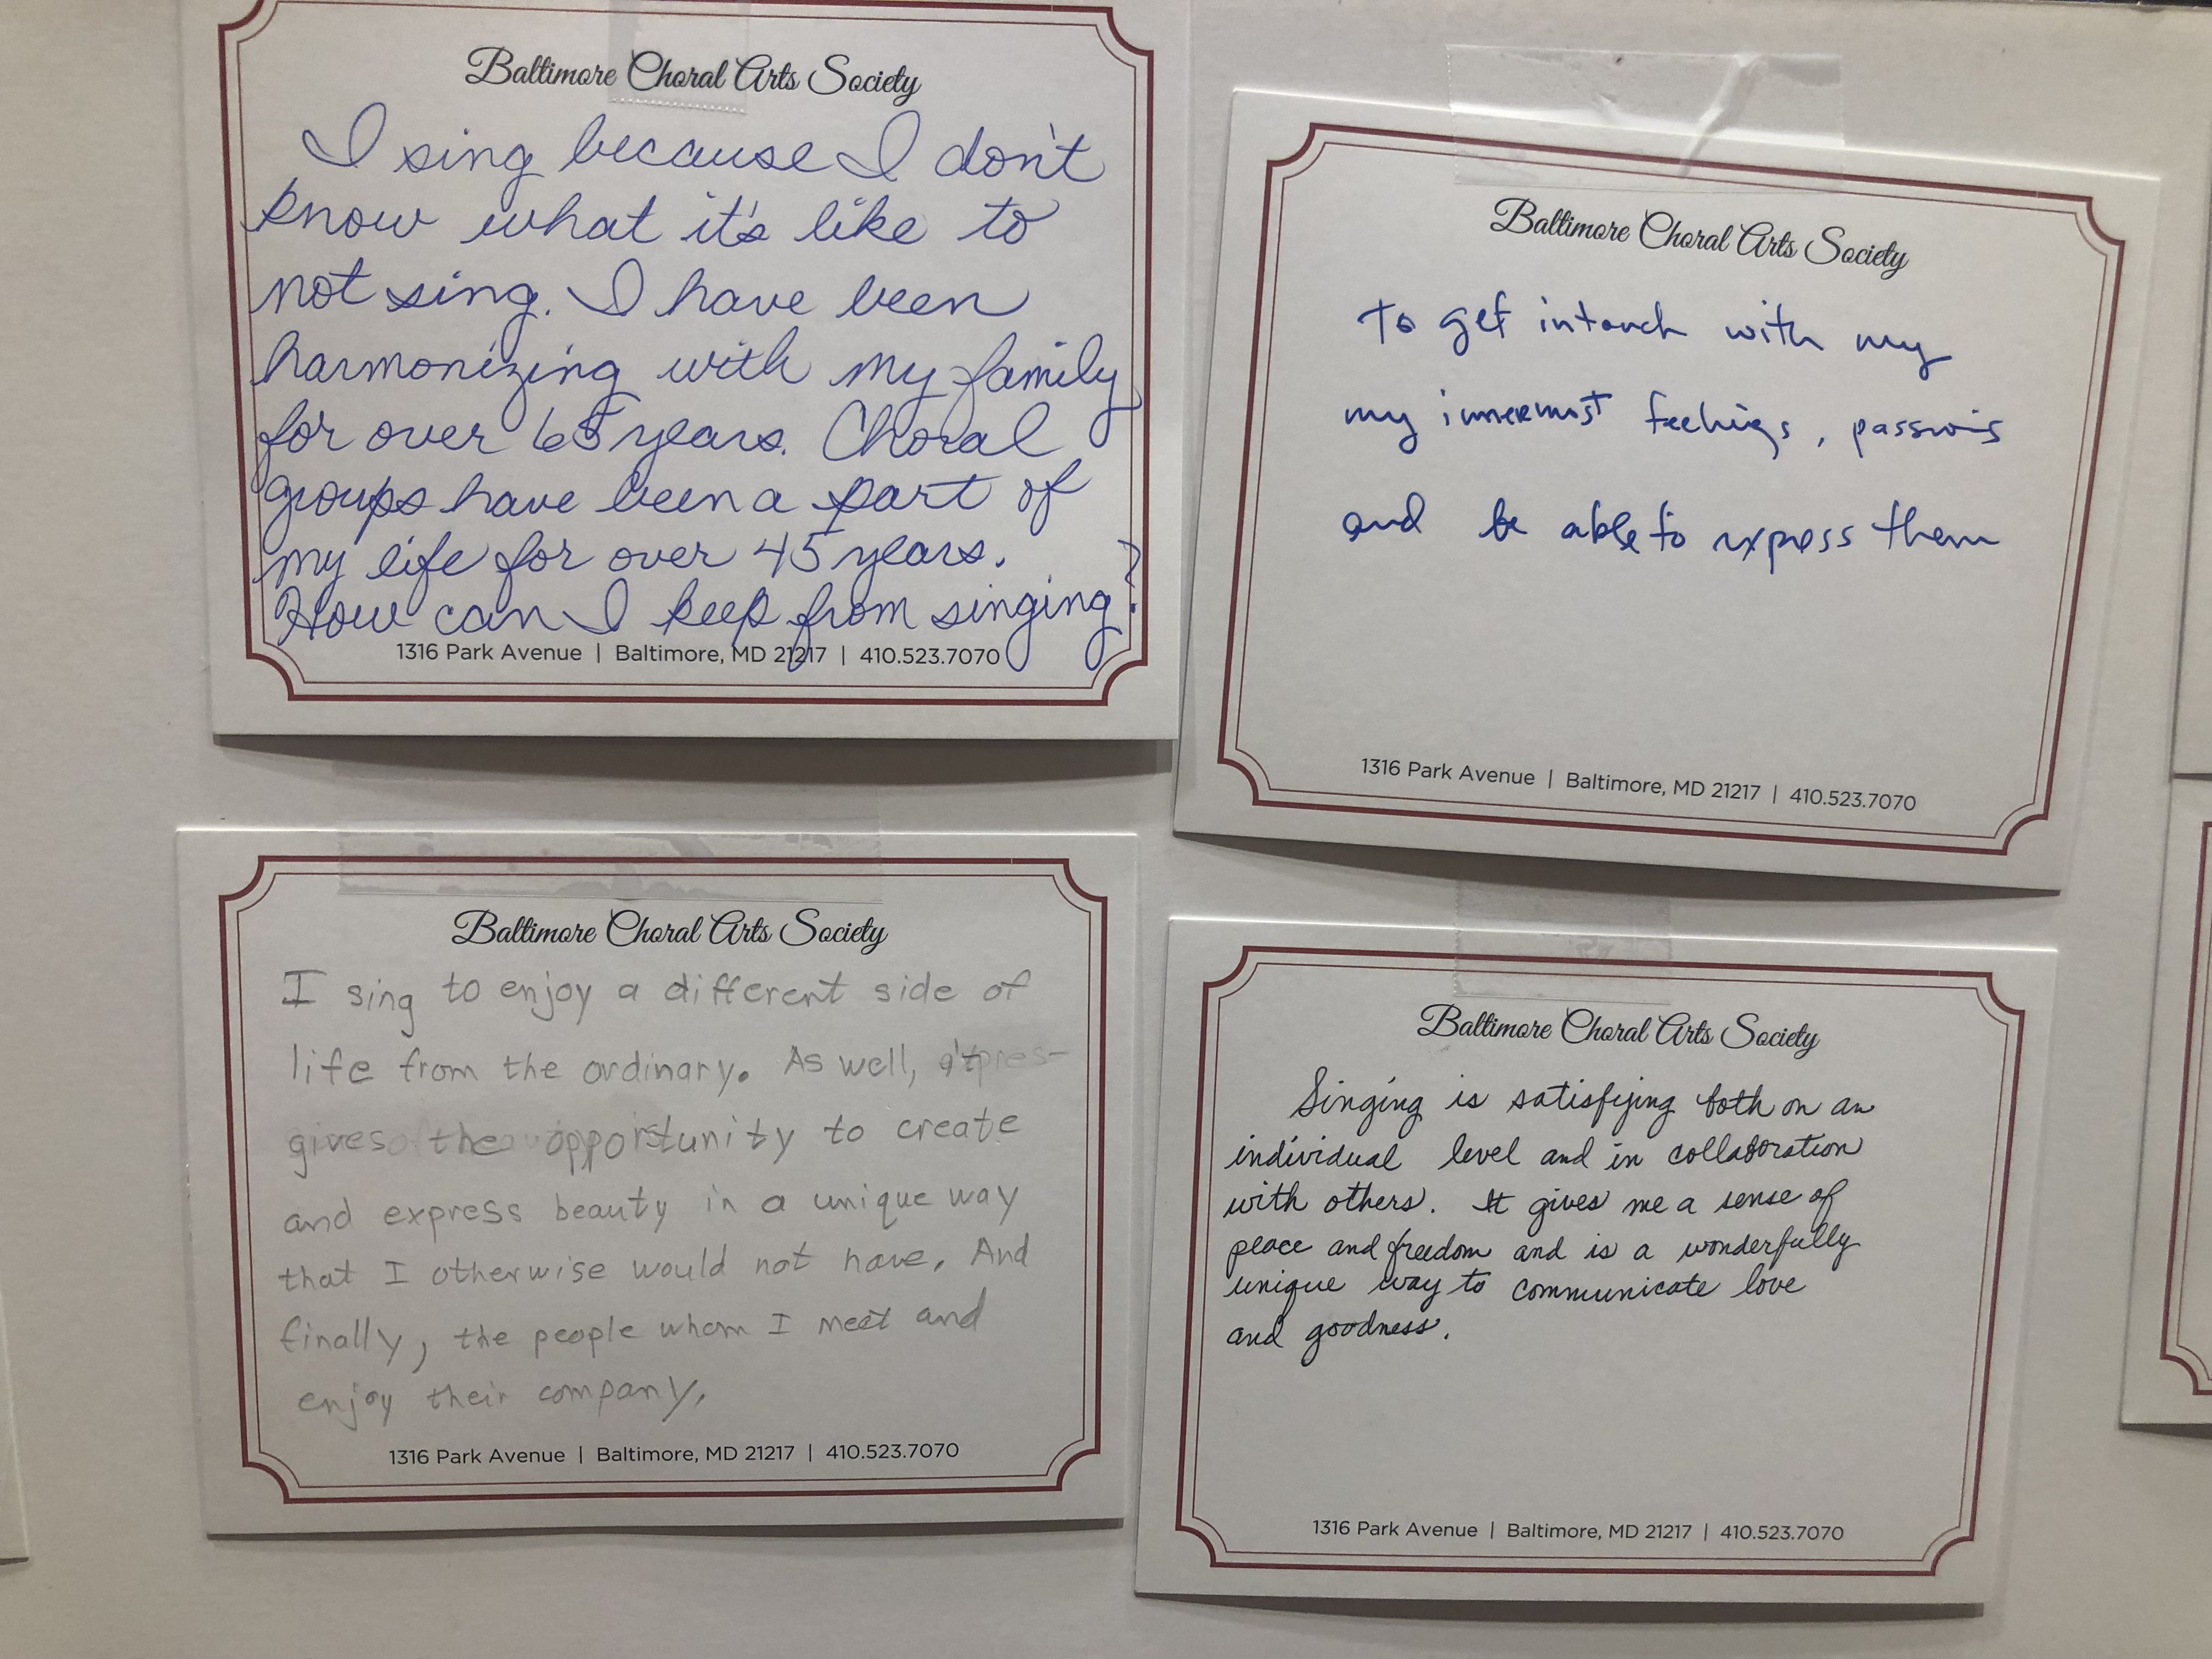 Baltimore Choral Arts Society
I sing because I don't
know what it's like to
not sing. I have been
harmonizing with my family
for over 65 years. Choral
groups have been a part of
my life for over 45 years.
How can I keep from singing?
1316 Park Avenue | Baltimore, MD 21217 | 410.523.7070
Baltimore Choral Arts Society
To get in touch with my
my innermost feelings, passions
and be able to express them
1316 Park Avenue | Baltimore, MD 21217 | 410.523.7070
Baltimore Choral Arts Society
I sing to enjoy a different side of
life from the ordinary. As well, it
gives the opportunity to create
and express beauty in a unique way
that I otherwise would not have. And
finally, the people whom I meet and
enjoy their company.
1316 Park Avenue | Baltimore, MD 21217 | 410.523.7070
Baltimore Choral Arts Society
Singing is satisfying both on an
individual level and in collaboration
with others. It gives me a sense of
peace and freedom and is a wonderfully
unique way to communicate love
and goodness.
1316 Park Avenue | Baltimore, MD 21217 | 410.523.7070